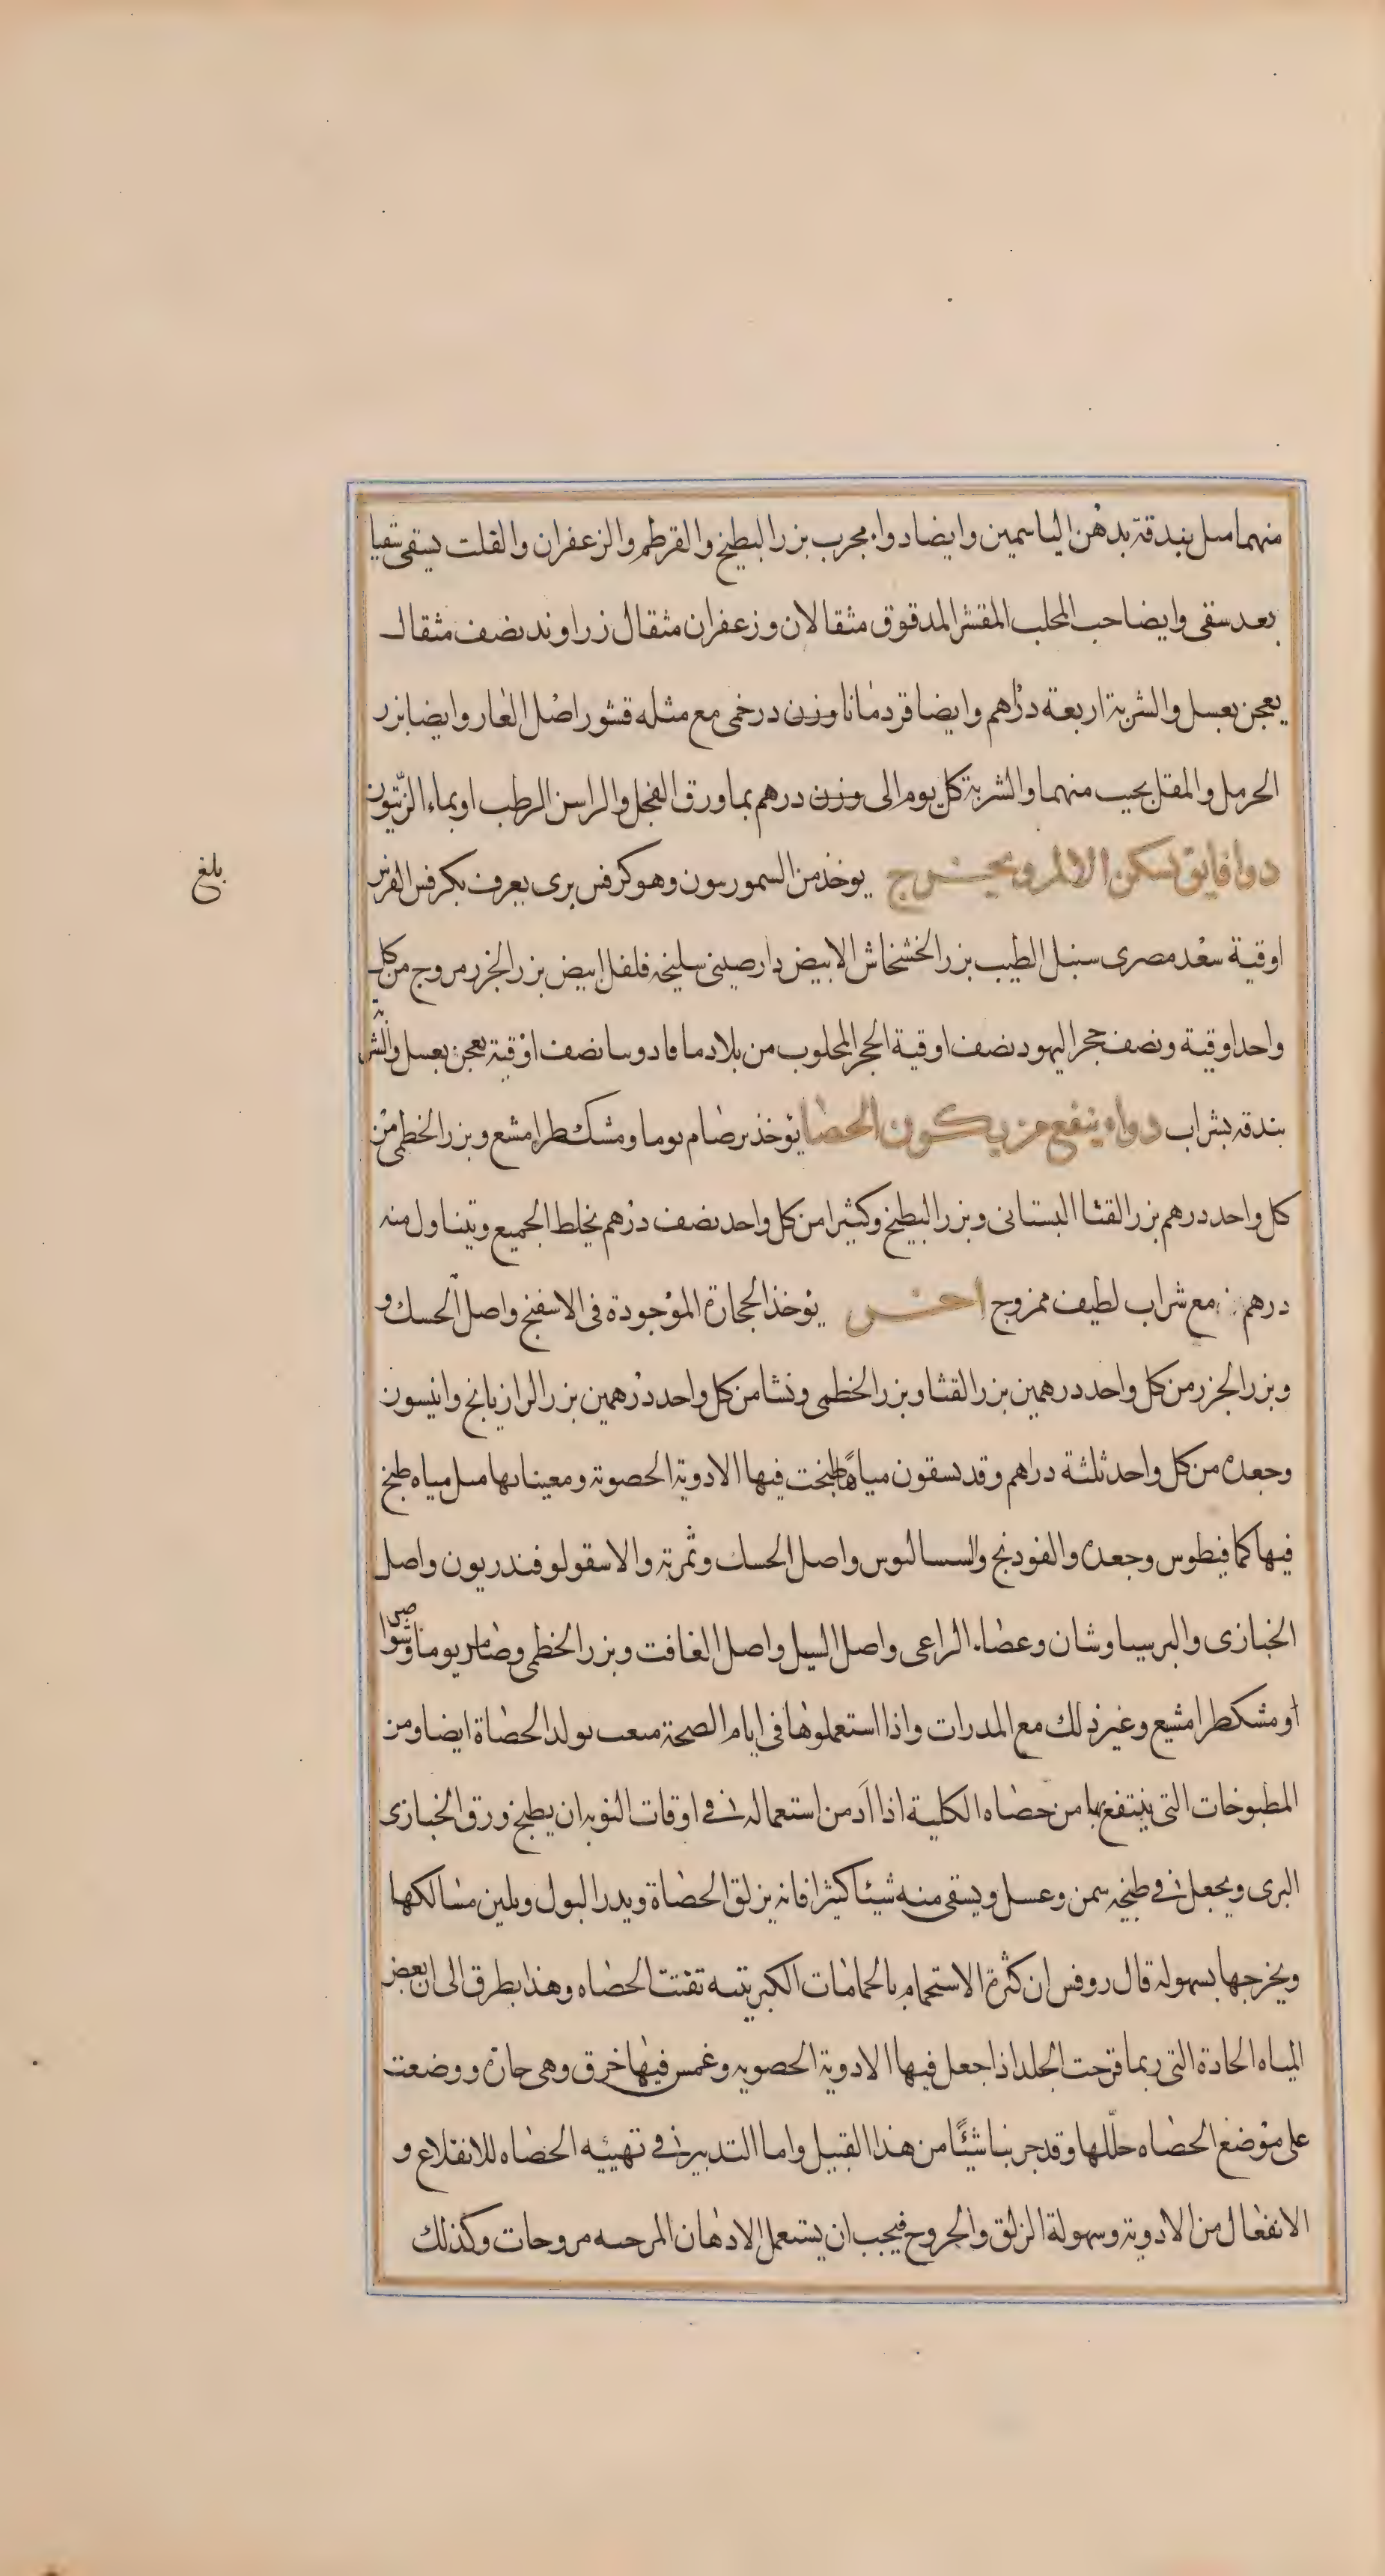 منهما مثل بندقة بدهن الياسمين وايضا دواء مجرب بزر البطيخ والقرطم والزعفران والقلت يسقى سقيا
بعد سقى وايضا حب المحلب المقشر المدقوق مثقالان وزعفران مثقال زراوند نصف مثقال
يعجن بعسل والشربة اربعة دراهم وايضا قردمانا وزن درخمى مع مثله قشور اصل الغار وايضا بزر
الحرمل والمقل يحبب منهما والشربة كل يوم الى وزن درهم بما ورق الفجل والراسن الرطب او بماء الزيتون
دوا فايق يسكن الالم ويخرج يوخذ من السمورنيون وهو كرفس برى يعرف بكرفس الفرس
بلغ
اوقية سعد مصرى سنبل الطيب بزر الخشخاش الابيض دارصينى سليخة فلفل ابيض بزر الجزر مروج من كل
واحد اوقية ونصف حجر اليهود نصف اوقية الحجر المجلوب من بلاد ما فادوسا نصف اوقية يعجن بعسل والشربة
بندقة بشراب دواء ينفع من يكون الحصا يوخذ برصام يوما ومشكطرامشع وبزر الخطمى من
كل واحد درهم بزر القثا البستانى وبزر البطيخ وكثيرا من كل واحد نصف درهم يخلط الجميع ويتناول منه
درهم مع شراب لطيف ممزوج اخرى يوخذ الحجارة الموجودة فى الاسفنج واصل الحسك و
وبزر الجزر من كل واحد درهمين بزر القثا وبزر الخطمى ونشا من كل واحد درهمين بزر الرازيانج وانيسون
وجعده من كل واحد ثلثة دراهم وقد يسقون مياها طبخت فيها الادوية الحصوية ومعيناتها مثل مياه طبخ
فيها كمافيطوس وجعده والفودنج والسساليوس واصل الحسك وثمرته والاسقولوفندريون واصل
الخبازى والبرسياوشان وعصاء الراعى واصل السيل واصل الغافت وبزر الخطمى وضامر يوما وشوا
او مشكطرامشيع وغير ذلك مع المدرات واذا استعملوها فى ايام الصحة منعت تولد الحصاة ايضا ومن
المطبوخات التى ينتفع بها من حصاه الكلية اذا ادمن استعماله فى اوقات النوبه ان يطبخ ورق الخبازى
البرى ويجعل فى طبيخه سمن وعسل ويسقى منه شيئا كثيرا فانه يزلق الحصاة ويدر البول ويلين مسالكها
ويخرجها بسهوله قال روفس ان كثرة الاستحمام بالحمامات الكبريتيه تفتت الحصاه وهذا بطرق الى ان بعض
المياه الحادة التى ربما قرحت الجلد اذا جعل فيها الادوية الحصويه وغمس فيها خرق وهى حارة ووضعت
على موضع الحصاه حللها وقد جربنا شيئا من هذا القبيل واما التدبير فى تهيئه الحصاه للانقلاع و
الانفعال من الادوية وسهولة الزلق والخروج فيجب ان يستعمل الادهان المرخيه مروحات وكذلك